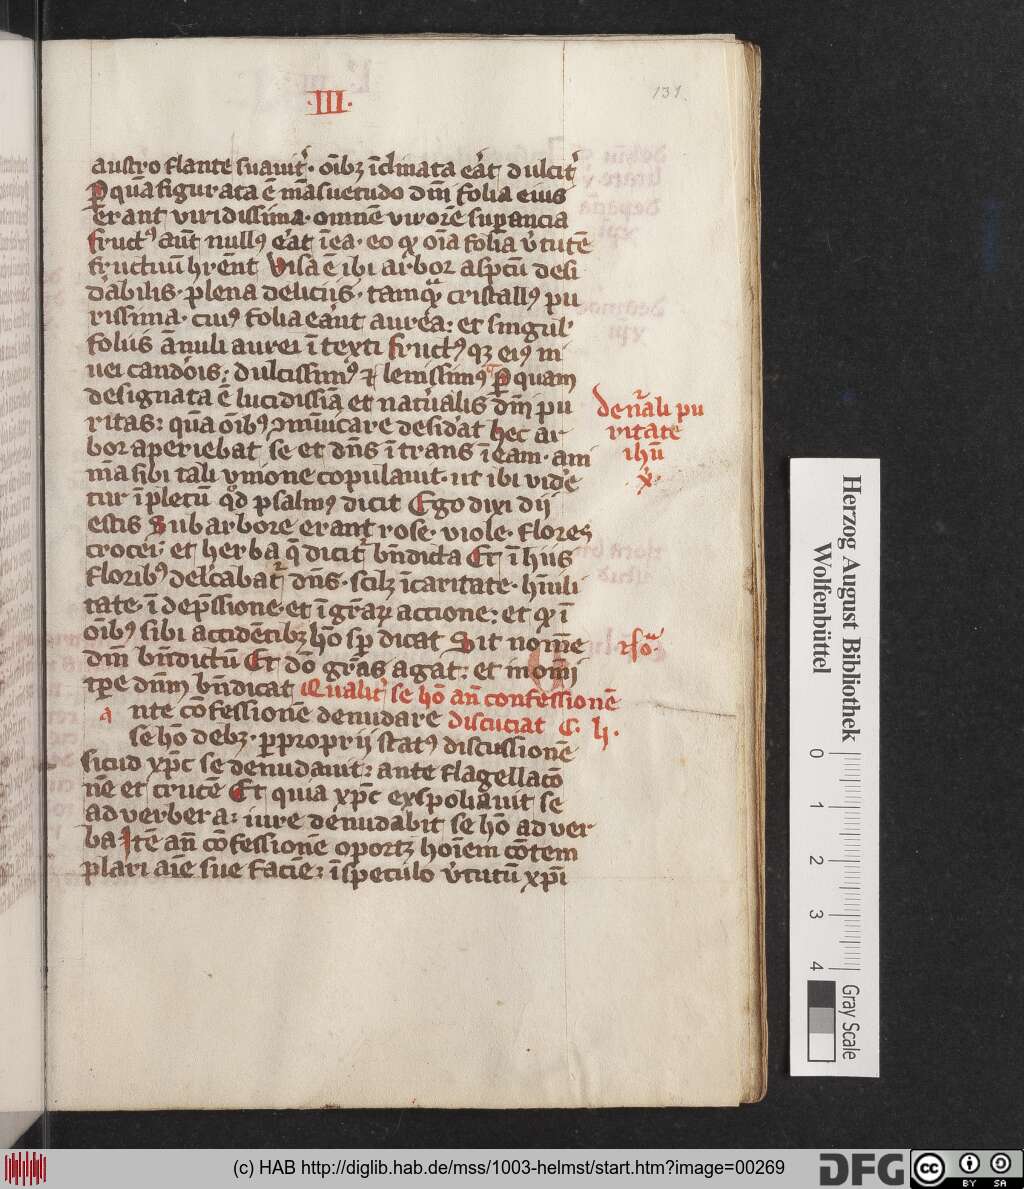 ·III·
131
austro flante suauit̉· oīb; īclinata eāt dulcit̉
ꝑ quā figurata ē māsuetudo dn̄i folia eius
erant viridissima· omnē virorē suꝑancia
fruct⁹ aūt null⁹ eāt ī ea· eo ꝙ oīa folia v̓tutē
fructuū hr̄ent Visa ē ibi arbor aspc̄tu desi
dābilis· plena deliciis· tamqᷓ cristall⁹ pu
rissima· cui⁹ folia eānt aurea: et singul̕
foliis ānuli aurei ītexti fruct⁹ qꝫ ei⁹ ni
uei candōis; dulcissim⁹ ⁊ lenissim⁹ ꝑ quam
designata ē lucidissīa et nat̉alis dn̄i pu
ritas: quā oīb⁹ ꝯmūicare desid̓at hec ar
bor aperiebat se et dn̄s ītrans ī eam· ani
mā sibi tali vnione copulauit· ut ibi vid̓e
tur īpletū qd̓ psalm⁹ dicit Ego dixi dii
estis Sub arbore erant rose· viole· flores
crocei; et herba q̄ dicit̉ bn̄dicta Et ī hiis
florib⁹ delc̄abat̉ dn̄s· scilꝫ ī caritate· hūili
tate· ī dep̄ssione· et ī gr̄aꝝ accione: et ꝙ ī
oīb⁹ sibi accidētibꝫ hō sꝑ dicat Sit nomē
dn̄i bn̄dictū Et dō grās agat: et ī nomī
tꝑe dnm̄ bn̄dicat Qualit̉ se hō an̄ confessionē
a nte cōfessionē denudare discuciat C. li.
se hō debꝫ· ꝑ proprii stat⁹ discussionē
sicud xp̄c se denudauit: ante flagellacō
nē et crucē Et quia xp̄c exspoliauit se
ad verbera: iure denudabit se hō ad ver
ba Itē an̄ cōfessionē oportꝫ hoīem cōtem
plari aīe sue faciē: ī speculo v̓tutū xp̄i
de nat̉ali pu
ritate
ihū
x̄·
rsō·
Herzog August Bibliothek
Wolfenbüttel
0 1 2 3 4
Gray Scale
(c) HAB http://diglib.hab.de/mss/1003-helmst/start.htm?image=00269
DFG
cc BY SA